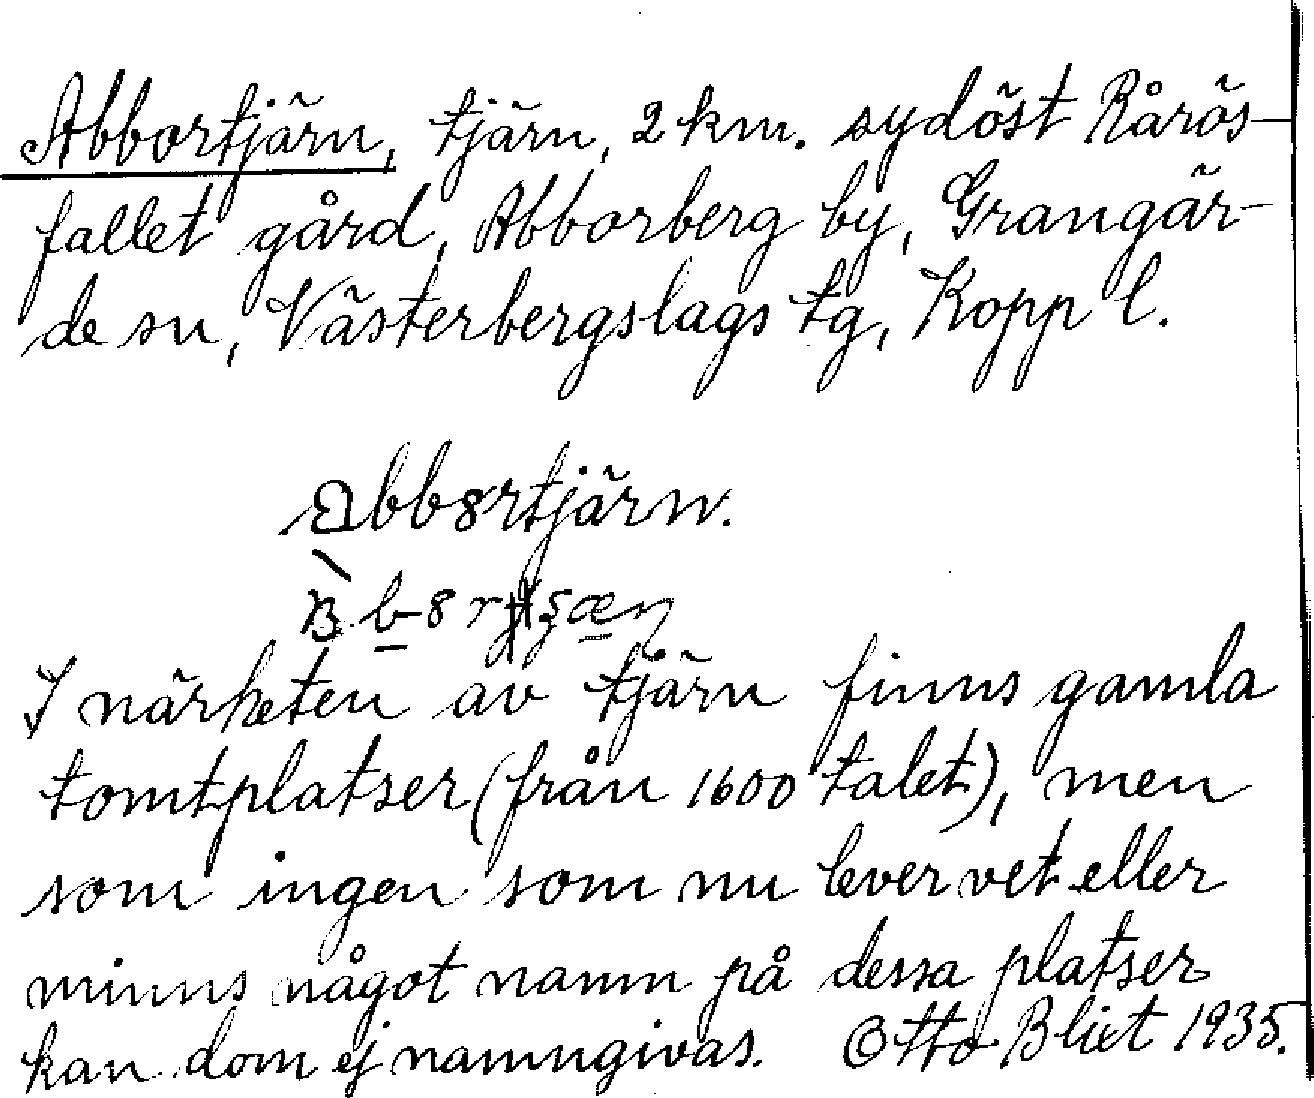 Abbortjärn, tjärn, 2 km. sydöst Rårös-
fallet gård, Abborberg by, Grangär-
de sn, Västerbergslags tg, Kopp l.
bb8rtjärn.
I närheten av tjärn finns gamla
tomtplatser (från 1600 talet), men
som ingen som nu lever vet eller
minns något namn på dessa platser
kan dom ej namngivas. Otto Blixt 1935.